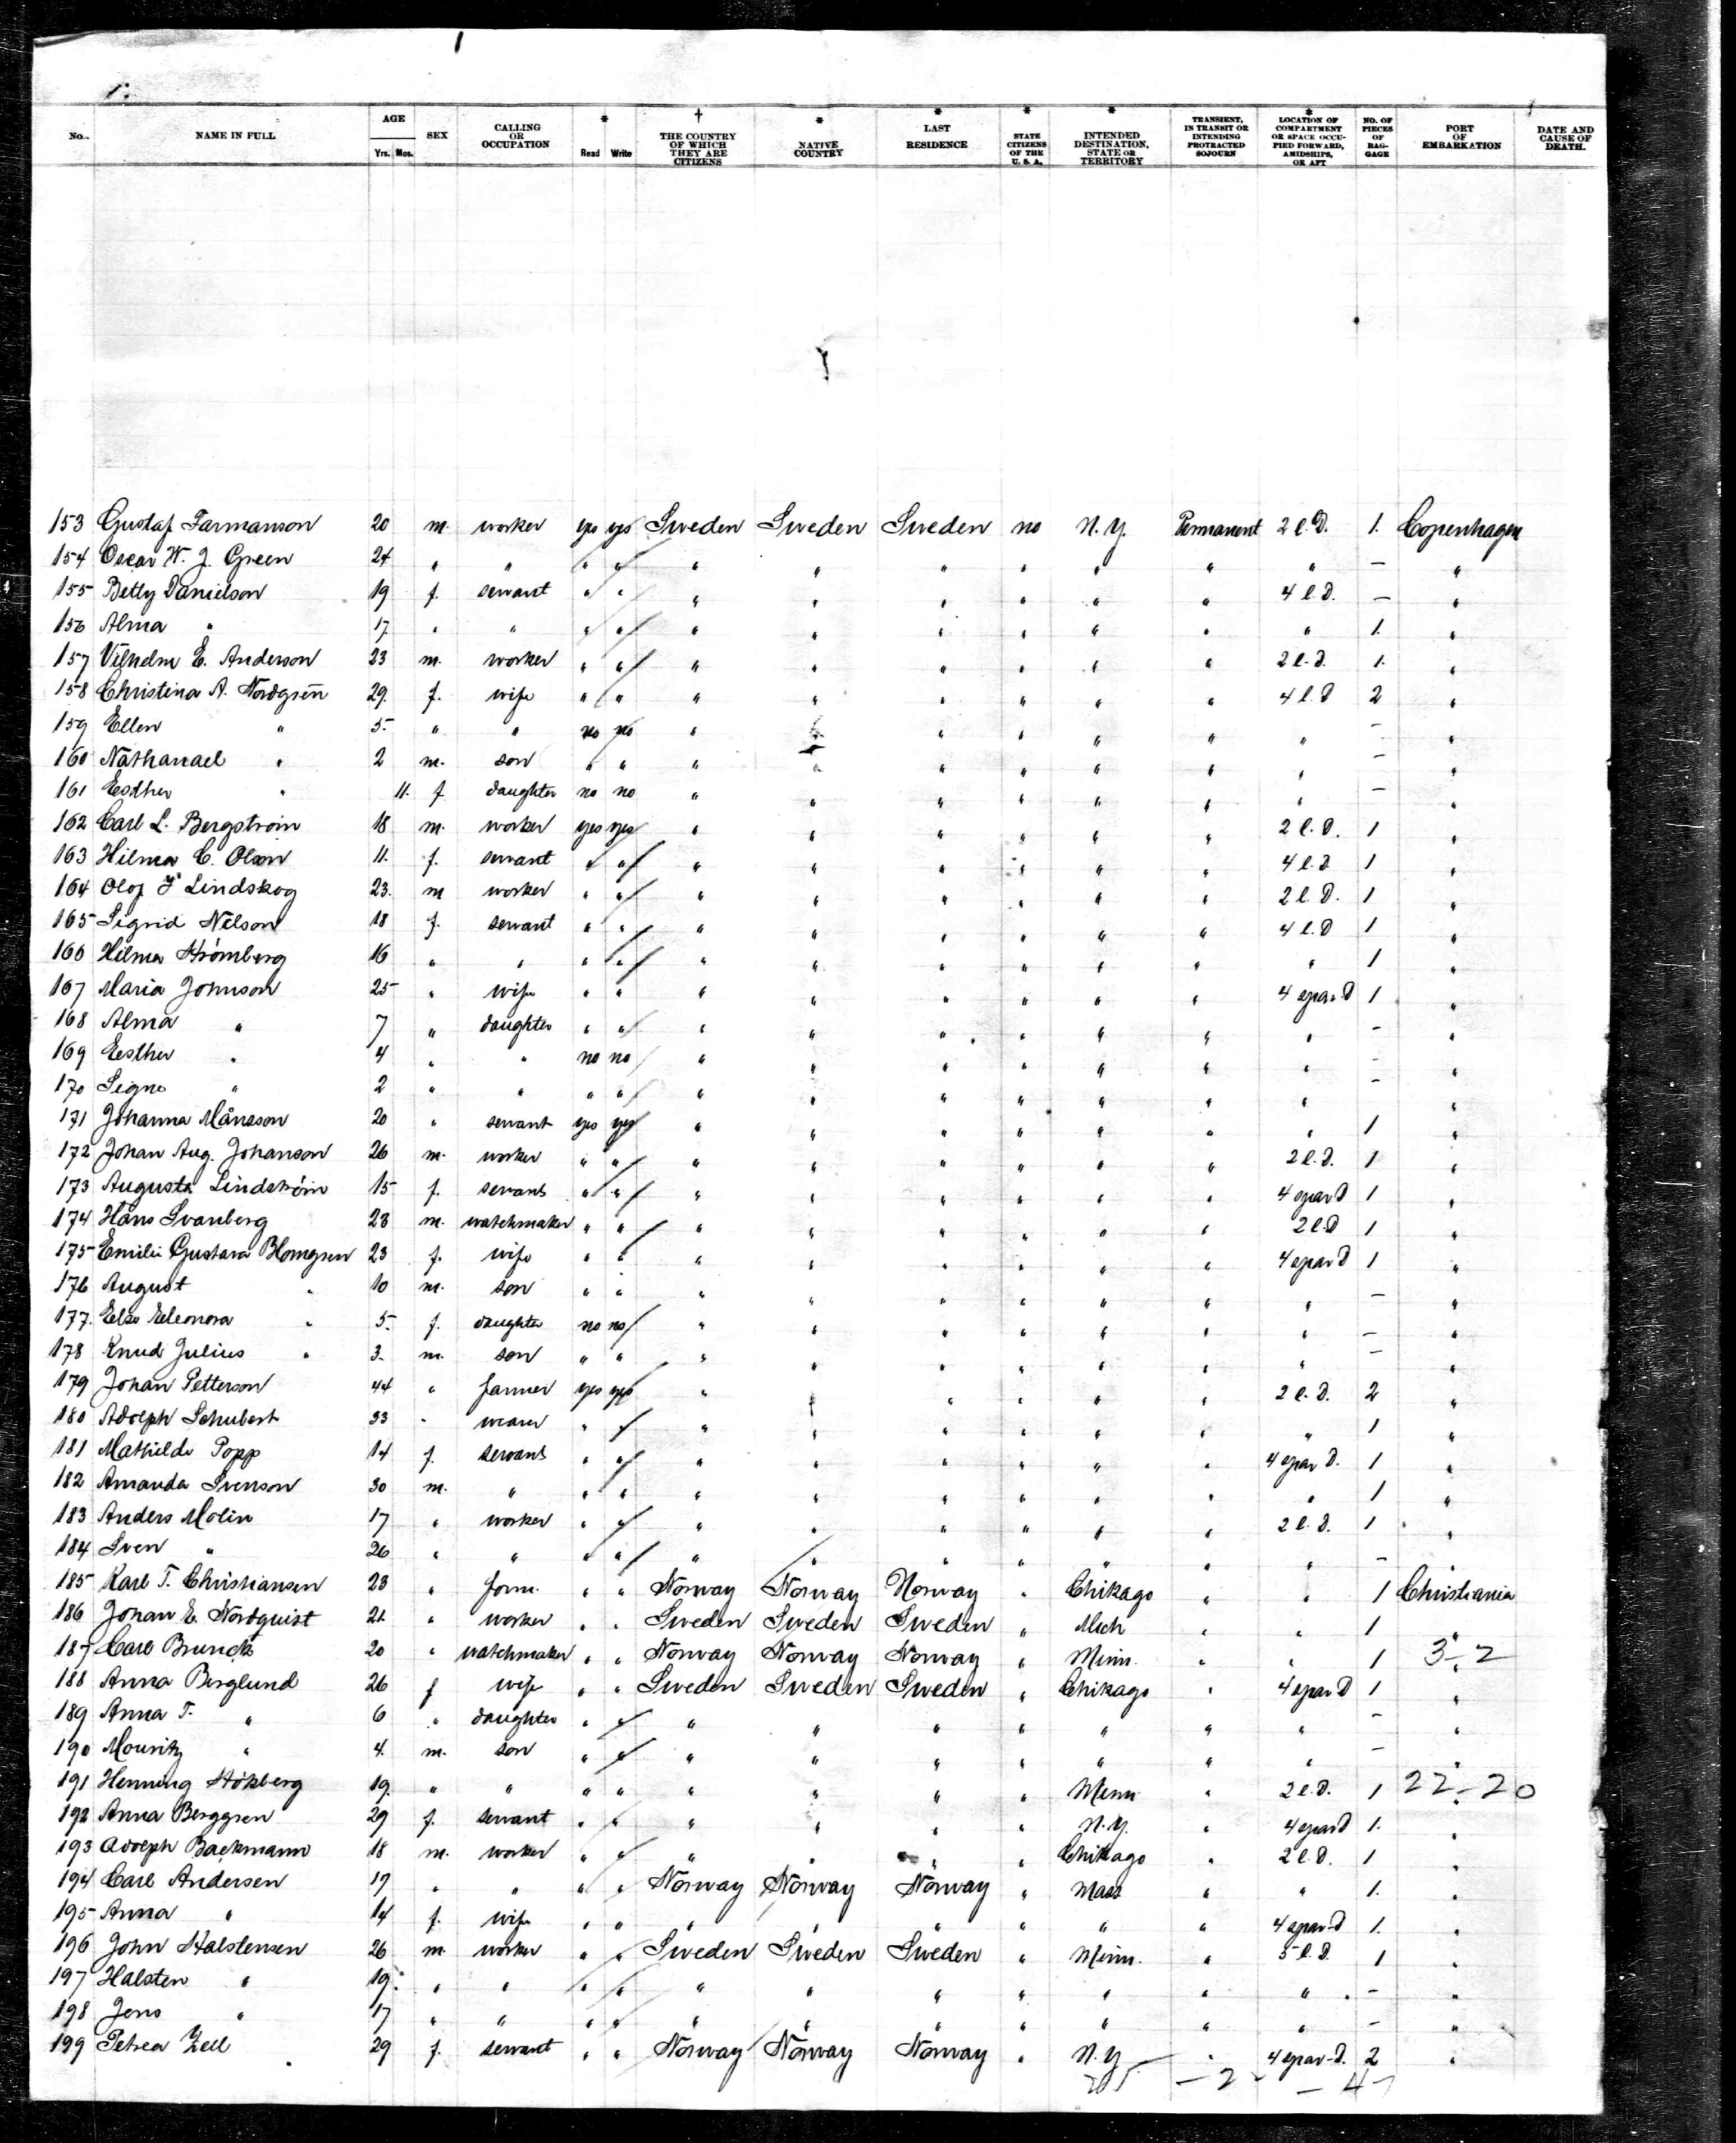 No. NAME IN FULL AGE Yrs. Mos. SEX CALLING OR OCCUPATION * Read Write † THE COUNTRY OF WHICH THEY ARE CITIZENS * NATIVE COUNTRY * LAST RESIDENCE * STATE CITIZENS OF THE U. S. A. * INTENDED DESTINATION, STATE OR TERRITORY TRANSIENT, IN TRANSIT OR INTENDING PROTRACTED SOJOURN * LOCATION OF COMPARTMENT OR SPACE OCCUPIED FORWARD, AMIDSHIPS, OR AFT NO. OF PIECES OF BAGGAGE PORT OF EMBARKATION DATE AND CAUSE OF DEATH.
153 Gustaf Farmanson 20 m. worker yes yes Sweden Sweden Sweden no N.Y. Permanent 2 l.D. 1. Copenhagen
154 Oscar W. J. Green 24 " " " " " " " " " " " — "
155 Betty Danielson 19 f. servant " " " " " " " " 4 l.D. — "
156 Alma " 17. " " " " " " " " " " " 1. "
157 Vilhelm E. Anderson 23 m. worker " " " " " " " " 2 l.D. 1. "
158 Christina A. Nordgren 29. f. wife " " " " " " " " 4 l.D 2 "
159 Ellen " 5. " " no no " " " " " " " — "
160 Nathanael " 2 m. son " " " " " " " " " — "
161 Eesther " 11. f daughter no no " " " " " " " — "
162 Carl L. Bergstrom 18 m. worker yes yes " " " " " " 2 l.D. 1 "
163 Hilma C. Olson 11. f. servant " " " " " " " " 4 l.D 1 "
164 Olof F Lindskog 23. m worker " " " " " " " " 2 l.D. 1 "
165 Sigrid Nelson 18 f. servant " " " " " " " " 4 l.D 1 "
166 Hilma Strömberg 16 " " " " " " " " " " " 1 "
167 Maria Johnson 25 " wife " " " " " " " " 4 apar D 1 "
168 Alma " 7 " daughter " " " " " " " " " — "
169 Eesther " 4 " " no no " " " " " " " — "
170 Signe " 2 " " " " " " " " " " " — "
171 Johanna Månsson 20 " servant yes yes " " " " " " " 1 "
172 Johan Aug. Johanson 26 m. worker " " " " " " " " 2 l.D. 1 "
173 Augusta Lindström 15 f. servant " " " " " " " " 4 apar D 1 "
174 Hans Svanberg 28 m. watchmaker " " " " " " " " 2 l.D 1 "
175 Emilie Gustava Blomgren 23 f. wife " " " " " " " " 4 apar D 1 "
176 August " 10 m. son " " " " " " " " " — "
177. Else Eleonora " 5. f. daughter no no " " " " " " " — "
178 Knud Julius " 3. m. son " " " " " " " " " — "
179 Johan Petterson 44 " farmer yes yes " " " " " " 2 l.D. 2 "
180 Adolph Schubert 33 " " " " " " " " " " 1 "
181 Mathilde Popp 14 f. servant " " " " " " " " 4 apar D. 1 "
182 Amanda Svenson 30 m. " " " " " " " " " " 1 "
183 Anders Molin 17 " worker " " " " " " " " 2 l.D. 1 "
184 Sven " 26 " " " " " " " " " " " — "
185 Karl T. Christiansen 23 " farm. " " Norway Norway Norway " Chikago " " 1 Christiania
186 Johan E. Nordquist 21 " worker " " Sweden Sweden Sweden " Mich " " 1 "
187 Carl 20 " watchmaker " " Norway Norway Norway " Minn. " " 1 3-2
188 Anna Berglund 26 f wife " " Sweden Sweden Sweden " Chikago " 4 apar D 1 "
189 Anna T. " 6 " daughter " " " " " " " " " — "
190 Mouritz " 4. m. son " " " " " " " " " — "
191 Henning 19. " " " " " " " " Minn " 2 l.D. 1 22-20
192 Anna Berggren 29 f. servant " " " " " " N.Y. " 4 apar D 1. "
193 Adolph Backmann 18 m. worker " " " " " " Chikago " 2 l.D. 1 "
194 Carl Andersen 17 " " " " Norway Norway Norway " Mass " " 1. "
195 Anna " 14 f. wife " " " " " " " " 4 apar D 1. "
196 John Halstensen 26 m. worker " " Sweden Sweden Sweden " Minn. " 5 l.D. 1 "
197 Halsten " 19. " " " " " " " " " " " — "
198 Jens " 17 " " " " " " " " " " " — "
199 Petrea Zell 29 f. servant " " Norway Norway Norway " N.Y " 4 apar D. 2 "
— 2 — — 4 —